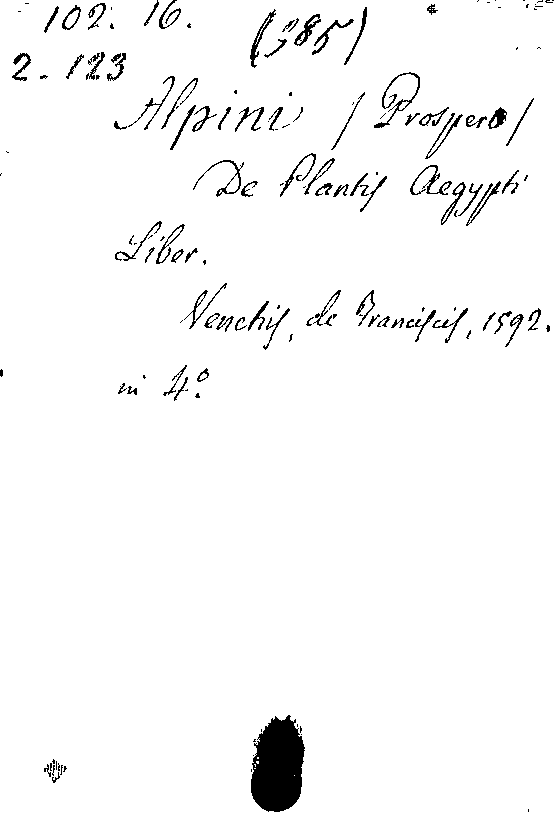 102. 16.
(385)
2-123
Alpini / Prospero /
De Plantis Aegypti
Liber.
Venetiis, de Franciscis, 1592.
in 4º